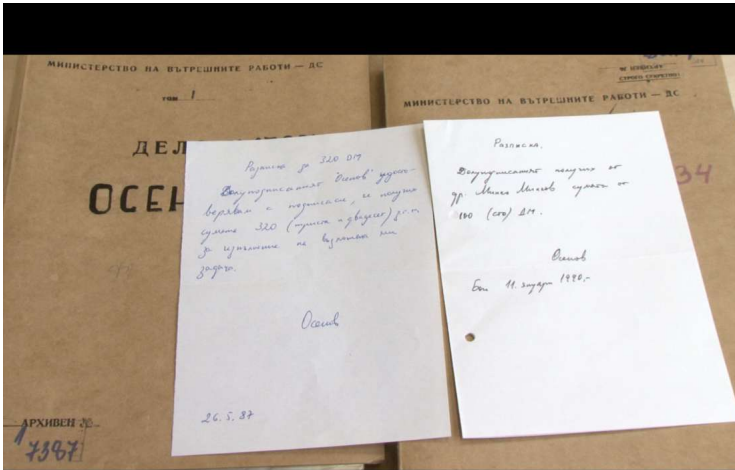 МИНИСТЕРСТВО НА ВЪТРЕШНИТЕ РАБОТИ — ДС
том I
ДЕЛ
ОСЕН
АРХИВЕН №
7387
СТРОГО СЕКРЕТНО!
МИНИСТЕРСТВО НА ВЪТРЕШНИТЕ РАБОТИ — ДС
34
Разписка за 320 DM
Долуподписаният "Осенов" удосто-
верявам с подписа си, че получих
сумата 320 (триста и двадесет)
за изпълнение на възложена ми
задача.
Осенов
26.5.87
Разписка.
Долуподписаният получих от
др. Минчо Минчев сумата от
100 (сто) ДМ.
Осенов
Бон 11. януари 1990,-